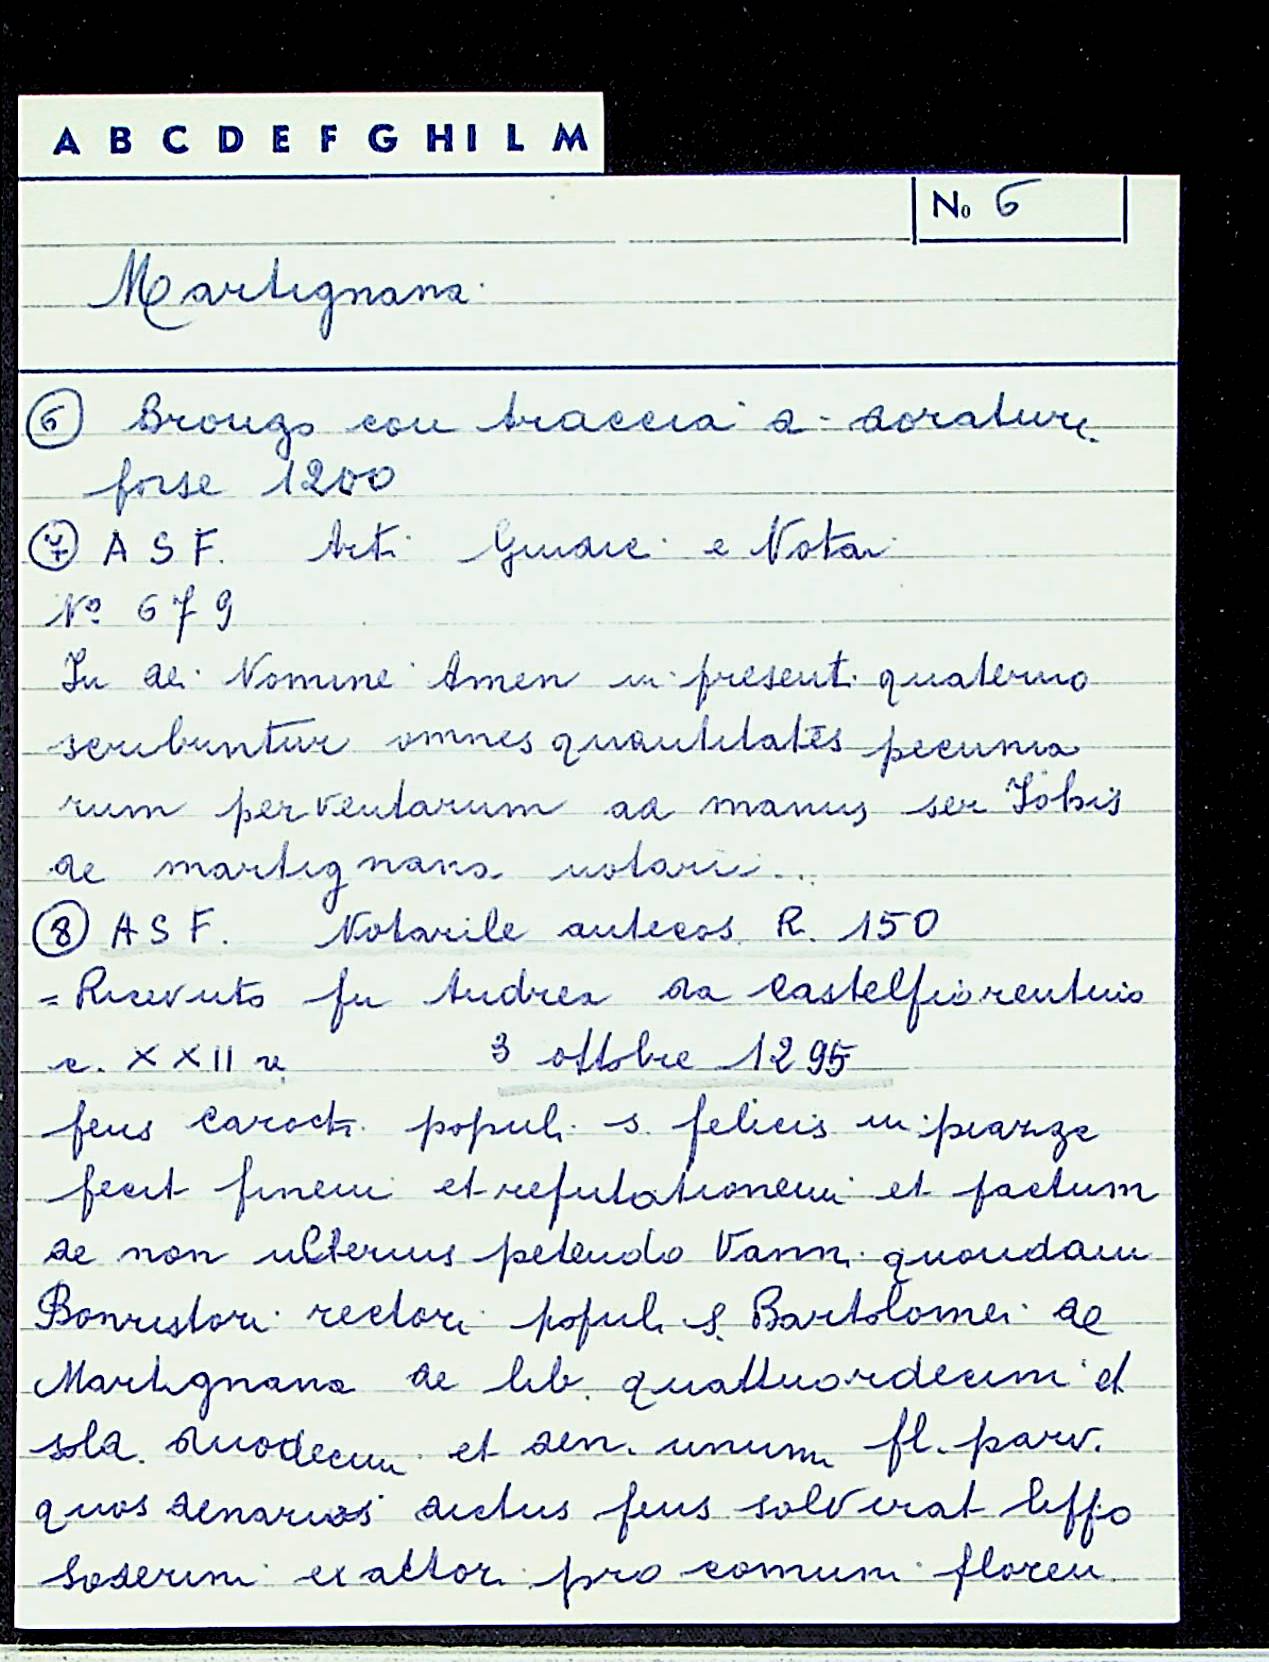 A B C D E F G H I L M
No 6
Martignana
6 Bronzo con traccia di dorature
forse 1200
7 A S F. Arti Giudici e Notai
No 679
In dei Nomine Amen in presenti quaterno
scribuntur omnes quantitates pecunia
rum perventarum ad manus ser Iohis
de martignana notarii...
8 A S F. Notarile antecos. R. 150
= Ricevuto fu Andrea da Castelfiorentino
c. XXII 3 ottobre 1295
feus populi s. felicis in piazza
fecit finem et refutationem et pactum
de non ulterius petendo Vanni quondam
Bonristori rectori populi S. Bartolomei de
Martignana de lib. quattuordecim et
sold. duodecim et den. unum fl. parv.
quos denarios dictus feus solverat
Soderini exattori pro comuni floren.